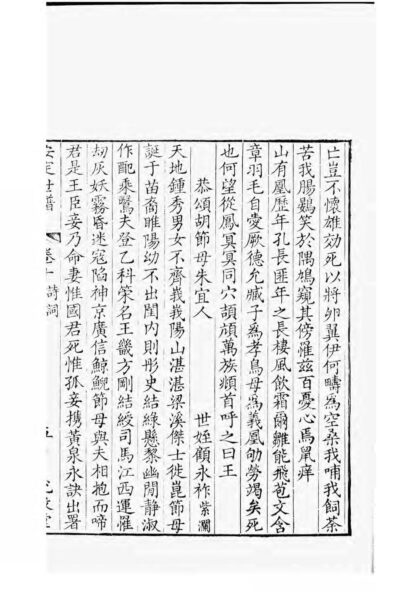 亡豈不懷雄効死以將卵翼伊何疇為空桑我哺我飼荼
苦我腸鷃笑於隅鴆窺其傍羅茲百憂心焉鼠痒
山有凰歷年孔長匪年之長棲風飲霜爾雛能飛苞文含
章羽毛自愛厥德允臧子為孝鳥母為義凰劬勞竭矣死
也何望從鳳冥冥同穴頡頏萬族頫首呼之曰王
恭頌胡節母朱宜人
世姪顧永祚紫瀾
天地鍾秀男女不齊峩峩陽山湛湛梁溪傑士徙崑節母
誕于苗裔睢陽幼不出閨内則彤史結縭懸鞶幽閒靜淑
作配乘鸞夫登乙科策名王畿方剛結綬司馬江西運罹
劫灰妖霧昏迷寇陷神京廣信鯨鯢節母與夫相抱而啼
君是王臣妾乃命妻惟國君死惟孤妾攜黃泉永訣出署
安定世譜 卷十 詩詞 五